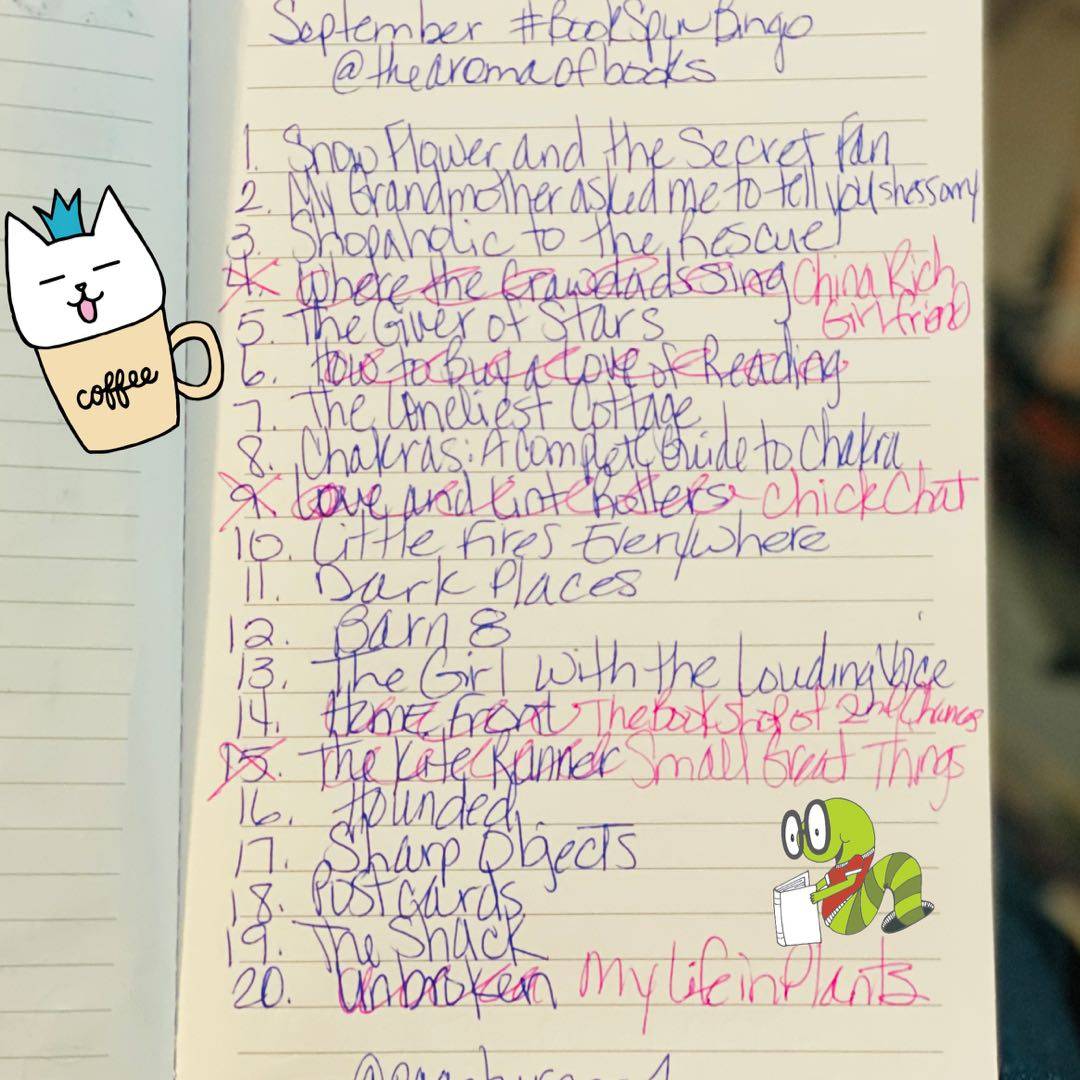 September #BookSpinBingo
@thearomaofbooks
1. Snow Flower and the Secret Fan
2. My Grandmother asked me to tell you shes sorry
3. Shopaholic to the Rescue
4. Where the Crawdads Sing China Rich Girlfriend
5. The Giver of Stars
6. How to Buy a Love of Reading
7. The Loneliest Cottage
8. Chakras: A Complete Guide to Chakra
9. Love and Lint Rollers Chick Chat
10. Little Fires Everywhere
11. Dark Places
12. Barn 8
13. The Girl with the Louding Voice
14. Home Front The Bookshop of 2nd Chances
15. The Kite Runner Small Great Things
16. Hounded
17. Sharp Objects
18. Postcards
19. The Shack
20. Unbroken My Life in Plants
coffee